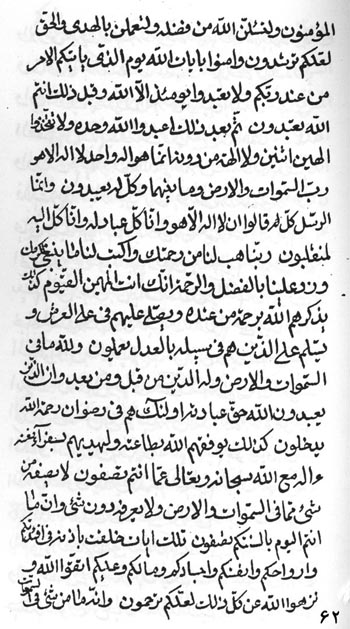 المؤمنون ولنسئلن الله من فضله ولنعملن بالهدى والحق
لعلكم ترشدون وامنوا بايات الله يوم الذى ياتيكم الامر
من عند ربكم ولا تعبدوا يومئذ الا الله وقبل ذلك انتم
الله تعبدون ثم بعد ذلك اعبدوا الله وحده ولا تتخذوا
الهين اثنين ولا الهة من دونه انما هو اله واحد لا اله الا هو
رب السموات والارض وما بينهما وكل له يعبدون وانما
الرسل كل له قالوا ان لا اله الا هو وانا كل عباد له وانا كل اليه
لمنقلبون ربنا هب لنا من رحمتك واكتب لنا ما
علينا بالفضل والرحمة انك انت المهيمن القيوم
يذكرهم الله برحمة من عنده ويصلى عليهم فى على العرش و
يسلم على الذين هم فى سبيله بالعدل يعملون ولله ما فى
السموات والارض وله الدين من قبل ومن بعد وان الذين
يعبدون الله حق عبادته اولئك هم فى رضوان رحمة الله
يدخلون كذلك يوفقهم الله بطاعته ويهديهم
مع الله سبحانه وتعالى عما انتم تصفون لا يصفه من
شئ مما فى السموات والارض ولا يعرفه دون شئ وان ما
انتم اليوم بالسنتكم تصفون تلك ايات خلقت باذنه فى افئدتكم
وارواحكم وانفسكم واجسادكم ومالكم وعليكم اتقوا الله و
نزهوا الله عن كل ذلك لعلكم ترحمون وانه ما من شئ فى السموات
٦٢